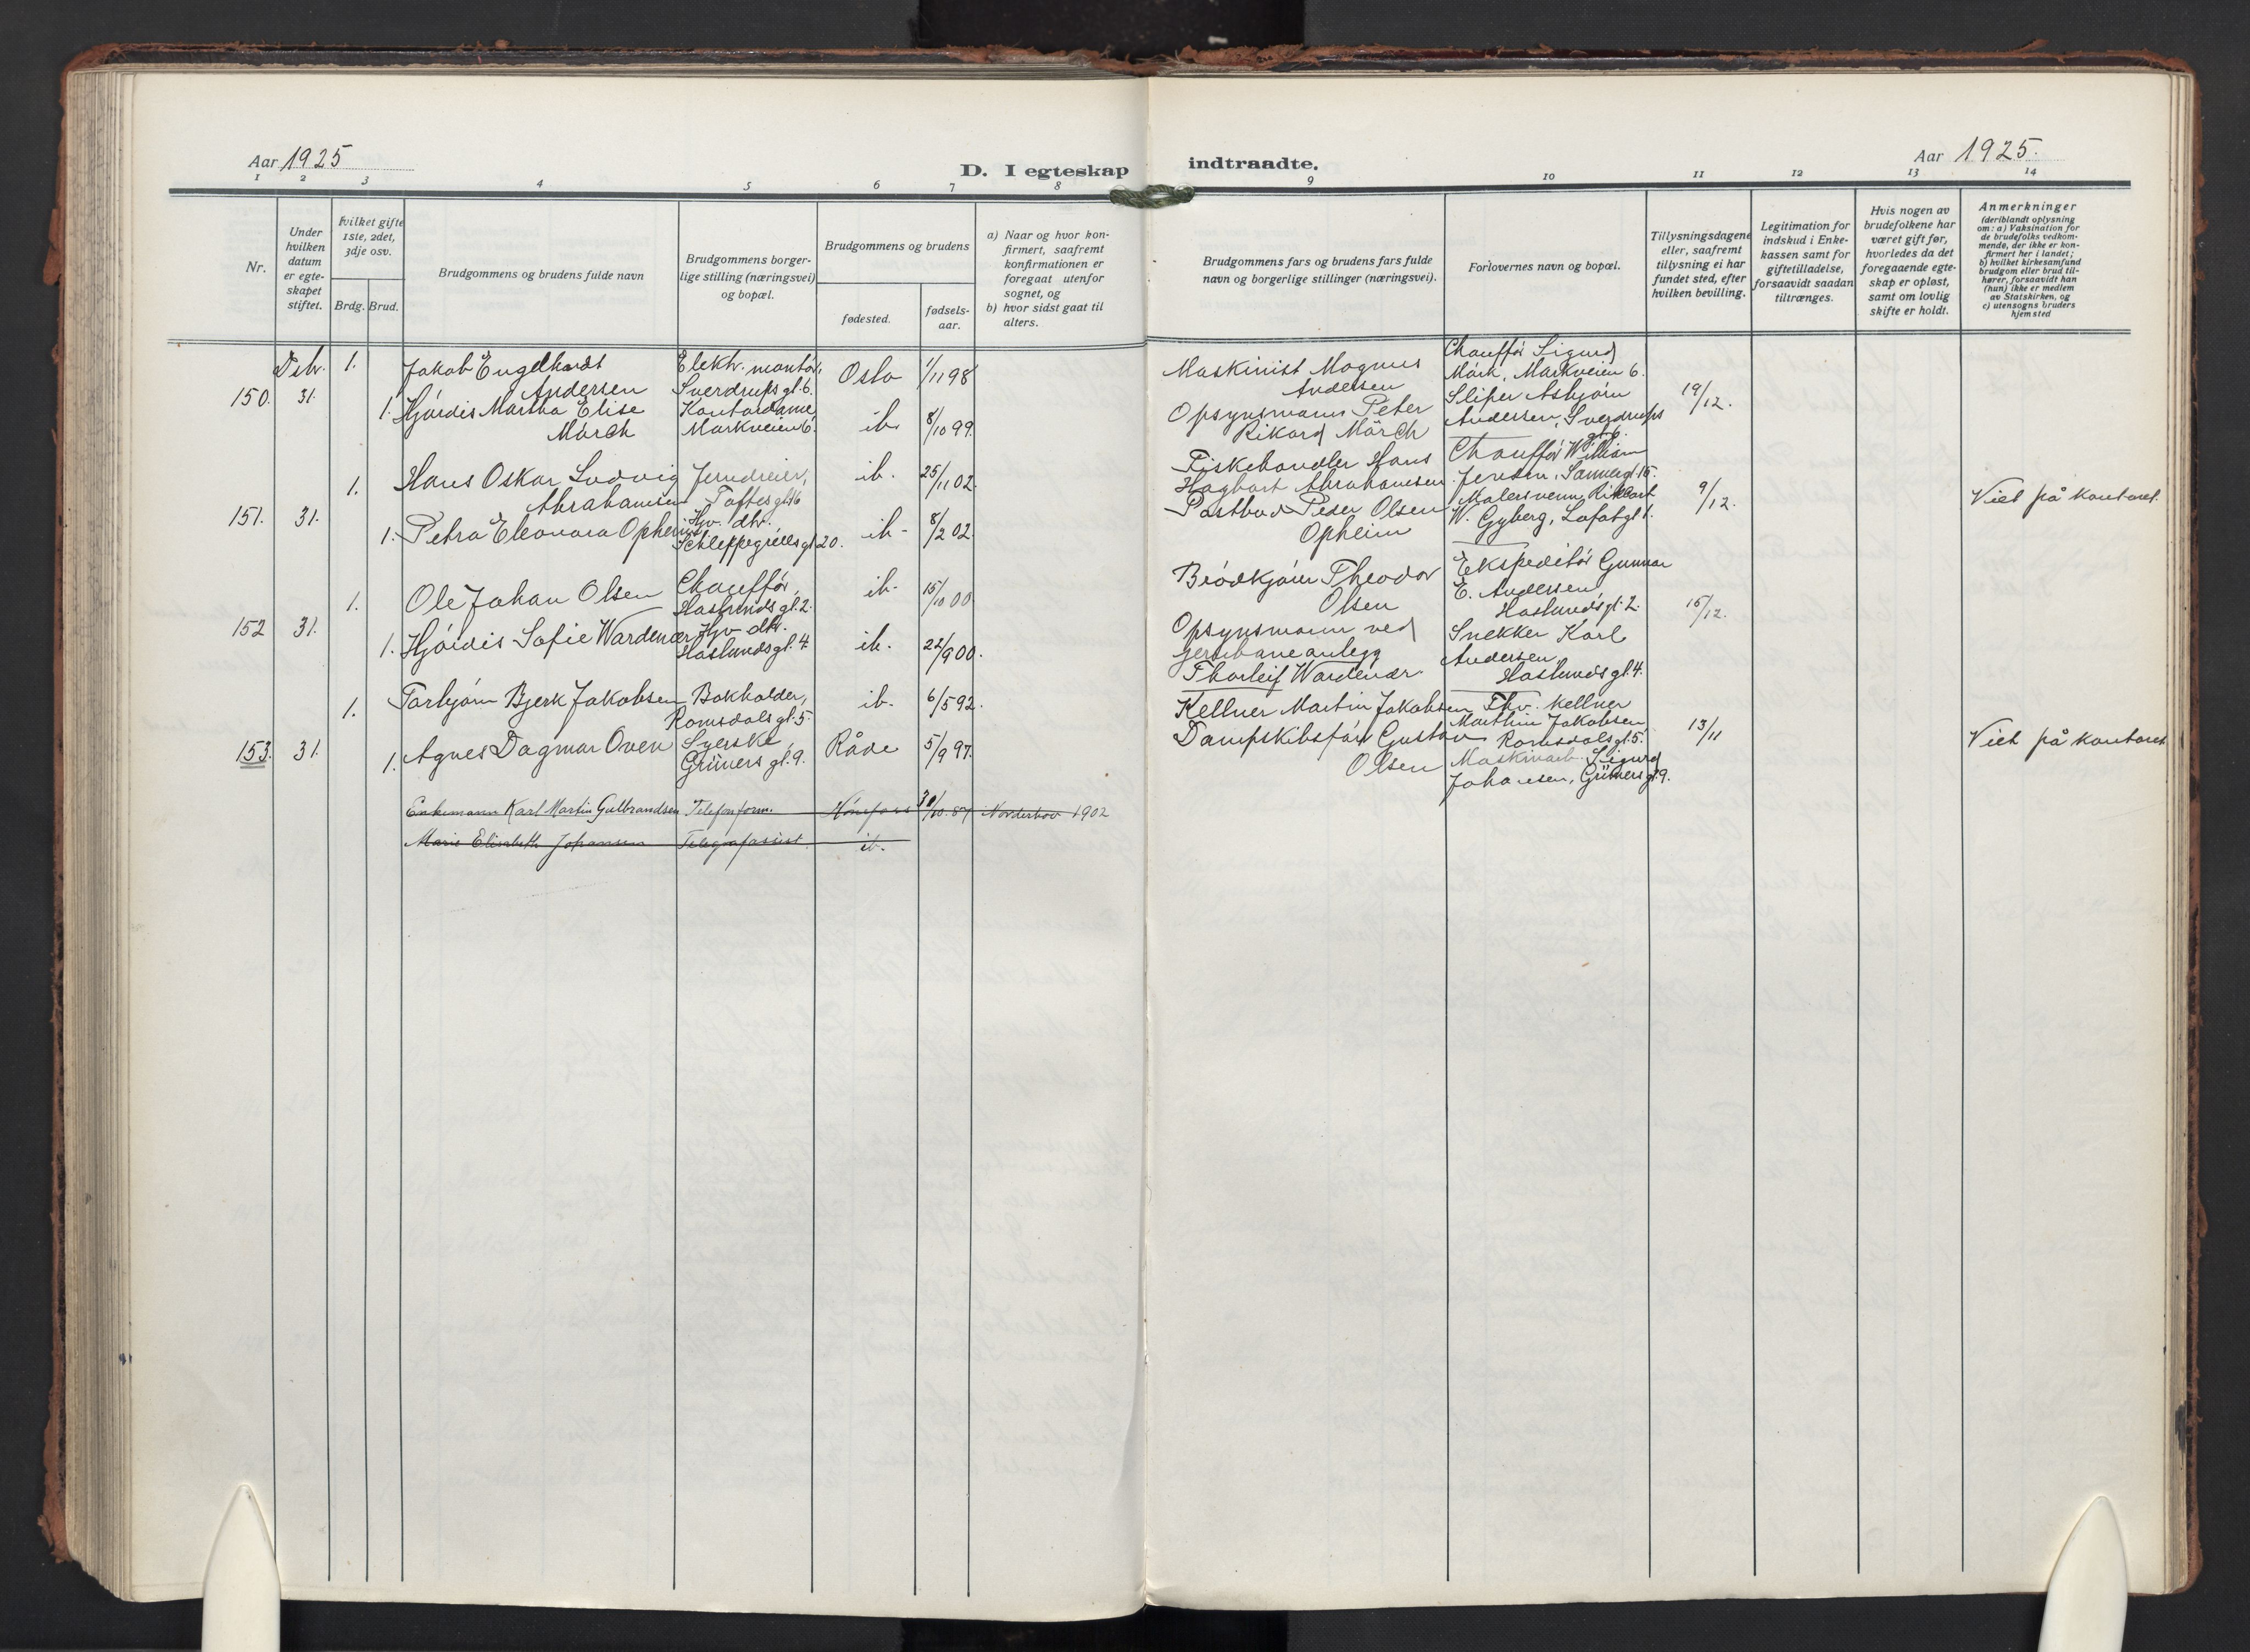 Aar 1925
D. I egteskap
indtraadte.
Aar 1925.
1 2 3 4 5 6 7 8 9 10 11 12 13 14
Nr.
Under hvilken datum er egteskapet stiftet.
Hvilket gifte 1ste, 2det, 3dje osv.
Brdg. Brud.
Brudgommens og brudens fulde navn
Brudgommens borger-
lige stilling (næringsvei)
og bopæl.
Brudgommens og brudens
fødested.
fødsels-
aar.
a) Naar og hvor kon-
firmert, saafremt
konfirmationen er
foregaat utenfor
sognet, og
b) hvor sidst gaat til
alters.
Brudgommens fars og brudens fars fulde
navn og borgerlige stillinger (næringsvei).
Forlovernes navn og bopæl.
Tillysningsdagene
eller, saafremt
tillysning ei har
fundet sted, efter
hvilken bevilling.
Legitimation for
indskud i Enke-
kassen samt for
giftetilladelse,
forsaavidt saadan
tiltrænges.
Hvis nogen av
brudefolkene har
været gift før,
hvorledes da det
foregaaende egte-
skap er opløst,
samt om lovlig
skifte er holdt.
Anmerkninger
(deriblandt oplysning
om: a) Vaksination for
de brudefolks vedkom-
mende, der ikke er kon-
firmert her i landet;
b) hvilket kirkesamfund
brudgom eller brud til-
hører, forsaavidt han
(hun) ikke er medlem
av Statskirken, og
c) utensogns bruders
hjemsted
150. Deb. 31.
1. Jakob Engelhardt
Andersen
Elektr. montør,
Sverdrups gt. 6.
Oslo 1/11 98
Maskinist Magnus
Andersen
Chauffør Sigurd
Mörk, Markveien 6.
1. Hjördis Martha Elise
Mörch
Kontordame
Markveien 6.
ib. 8/10 99.
Opsynsmann Peter
Rikard Mörch
Sliper Asbjørn
Andersen, Sverdrups
gt. 6.
19/12.
151. 31.
1. Hans Oskar Ludvig
Abrahamsen
Jerndreier,
Toftes gt. 16
ib. 25/11 02.
Fiskehandler Hans
Hagbart Abrahamsen
Chauffør William
Jensen, Sannergt. 15.
1. Petra Eleonora Opheim
Hv. dtr.
Schleppegrells gt. 20.
ib. 8/2 02.
Postbud Peder Olsen
Opheim
Malersvenn Rikkart
W. Gyberg, Lofotgt. 1.
9/12.
Viet på kontoret.
152 31.
1. Ole Johan Olsen
Chauffør,
Haslunds gt. 2.
ib. 15/10 00.
Brödkjörer Theodor
Olsen
Ekspeditör Gunnar
E. Andersen,
Haslunds gt. 2.
1. Hjördis Sofie Wardenær
Hjv. dtr.
Haslunds gt. 4
ib. 22/9 00.
Opsynsmann ved
jernbaneanlegg
Thorleif Wardenær
Snekker Karl
Andersen,
Haslunds gt. 4.
15/12.
153. 31.
1. Torbjörn Bjerk Jakobsen
Bokholder,
Romsdals gt. 5.
ib. 6/5 92.
Kellner Martin Jakobsen
Fhv. kellner
Marthin Jakobsen
Romsdals gt. 5.
1. Agnes Dagmar Oven
Syerske,
Grüners gt. 9.
Råde 5/9 97.
Dampskibsförer Gustav
Olsen
Maskinarb. Sigurd
Johansen, Grüners gt. 9.
13/11
Viet på kontoret
Enkemann Karl Martin Gulbrandsen Telefonform. Hönefoss 30/10. 87 Norderhov 1902
Marie Elisabeth Johansen Telegrafassist. ib.